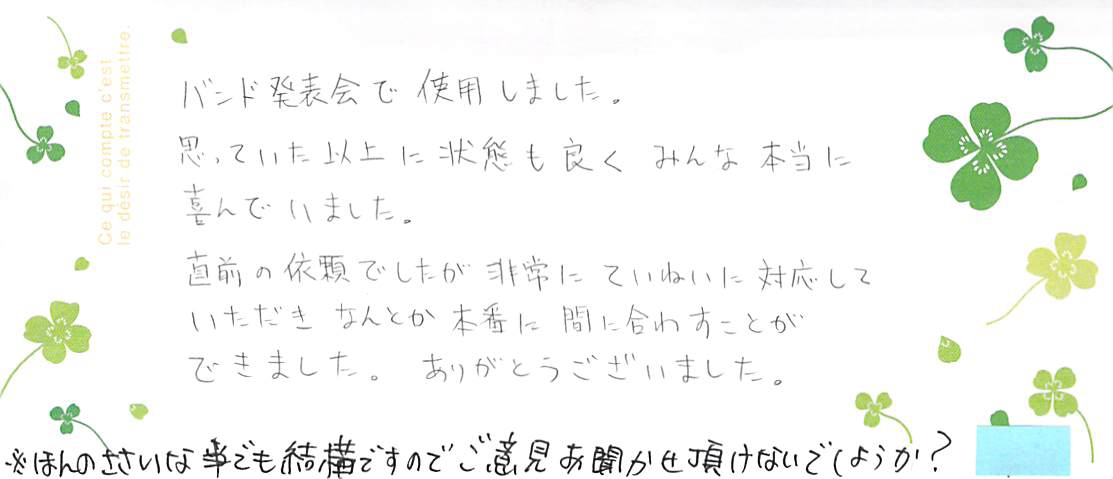 Ce qui compte c'est
le désir de transmettre.
バンド発表会で使用しました。
思っていた以上に状態も良くみんな本当に
喜んでいました。
直前の依頼でしたが非常にていねいに対応して
いただきなんとか本番に間に合わすことが
できました。ありがとうございました。
※ほんのささいな事でも結構ですのでご意見お聞かせ頂けないでしょうか?